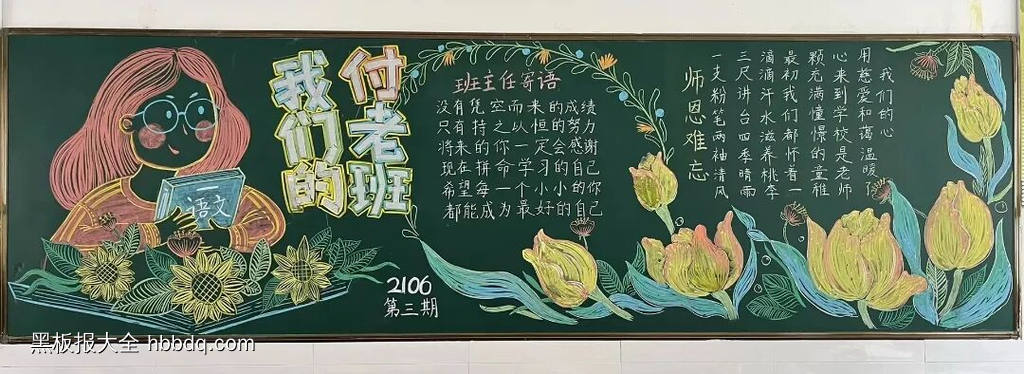 我们的
付老班
班主任寄语
没有凭空而来的成绩
只有持之以恒的努力
将来的你一定会感谢
现在拼命学习的自己
希望每一个小小的你
都能成为最好的自己
2106
第三期
师恩难忘
一支粉笔两袖清风
三尺讲台四季晴雨
滴滴汗水滋养桃李
最初我们都怀着一
颗充满憧憬的童稚
心来到学校是老师
用慈爱和蔼温暖了
我们的心
语文
黑板报大全 hbbdq.com